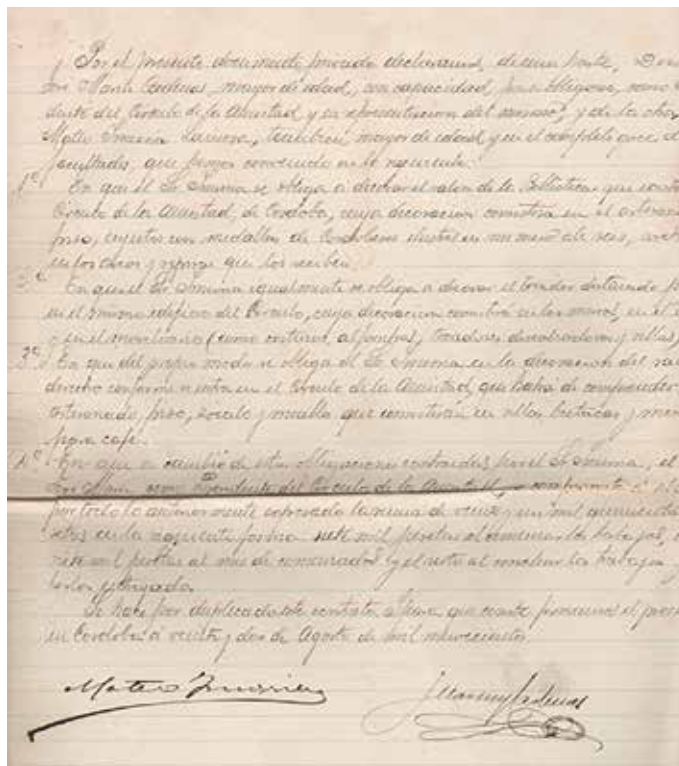 Por el presente documento privado declaramos, de una parte, Don
Jose Marin Cadenas, mayor de edad, con capacidad para obligarse, como
dente del Círculo de la Amistad y en representacion del mismo, y de la otra
Mateo Inurria Lainosa, tambien mayor de edad y en el completo goce
facultades, que hemos convenido en lo siguiente.
1º En que el Sr Inurria se obliga a decorar el salon de la Biblioteca que
Círculo de la Amistad, de Cordoba, cuya decoracion consistirá en el artesonado
friso, con medallas de Cordobeses ilustres en numero de seis,
y que los reciben.
2º En que el Sr Inurria igualmente se obliga a decorar el tocador destinado
en el mismo edificio del Círculo, cuya decoracion consistirá en los muros, en el
y en el moviliario (como cortinas, alfombras, tocadores y sillas)
3º En que del propio modo se obliga el Sr Inurria en la decoracion del
derecho conforme se entra en el Círculo de la Amistad, que habra de comprender
artesonado, friso, zocalo y muebles que consistiran en sillas butacas y
para cafe.
4º En que a cambio de estas obligaciones contraidas por el Sr Inurria, el
Sr Marin como Presidente del Círculo de la Amistad, se compromete a
por todo lo anteriormente expresado la suma de veinte y un mil quinientas
setas en la siguiente forma siete mil pesetas al comenzar los trabajos,
siete mil pesetas al mes de comenzados y el resto al concluir los trabajos
entregada.
Se hace por duplicado este contrato y para que conste firmamos el
en Cordoba a veinte y dos de Agosto de mil novecientos
Mateo Inurria
J Marin Cadenas